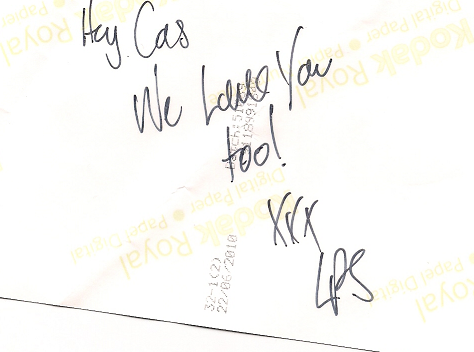 Hey Cas
We Love You
too!
XXX
LPS
Kodak Royal
Digital Paper
Kodak Royal
Digital Paper
Kodak Royal
Digital Paper
32-1(2)
22/06/2010